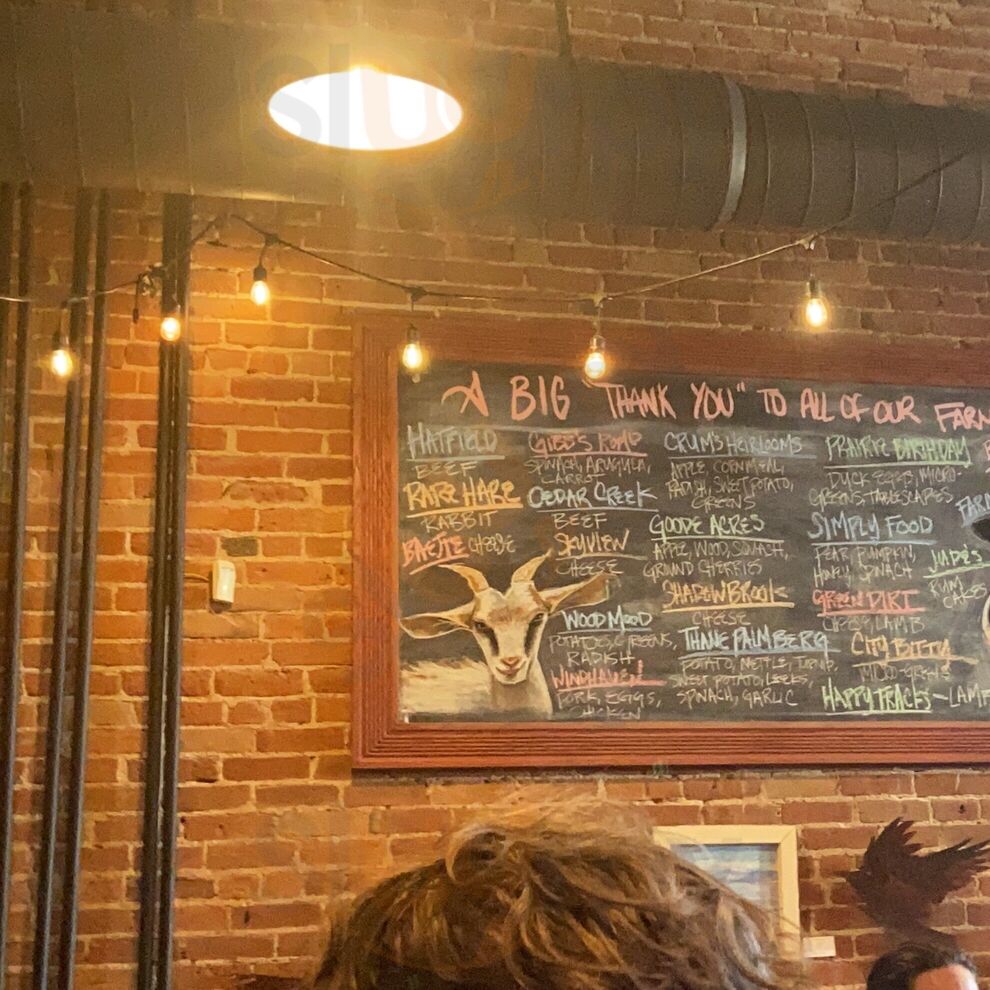 A BIG "THANK YOU" TO ALL OF OUR FARM
HATFIELD
BEEF
RARE HARE
RABBIT
BAETJE CHEESE
GIBBS ROAD
SPINACH, ARUGULA,
CARROT
CEDAR CREEK
BEEF
SKYVIEW
CHEESE
WOOD MOOD
POTATOES, GREENS,
RADISH
WINDHAVEN
PORK, EGGS,
CHICKEN
CRUM'S HEIRLOOMS
APPLE, CORNMEAL,
RADISH, SWEET POTATO,
GREENS
GOODE ACRES
APPLE, WOOD, SQUASH,
GROUND CHERRIES
SHADOWBROOK
CHEESE
THANE PALMBERG
POTATO, NETTLE, TURNIP,
SWEET POTATO, LEEKS,
SPINACH, GARLIC
PRAIRIE BIRTHDAY
DUCK EGGS, MICRO
GREENS-TABLESCAPES
SIMPLY FOOD
PEAR, PUMPKIN,
HONEY, SPINACH
GREEN DIRT
CHEESE, LAMB
CITY BITTY
MICRO-GREENS
HAPPY TRACKS-LAMB
FARM
JUDE'S
RUM
CAKES